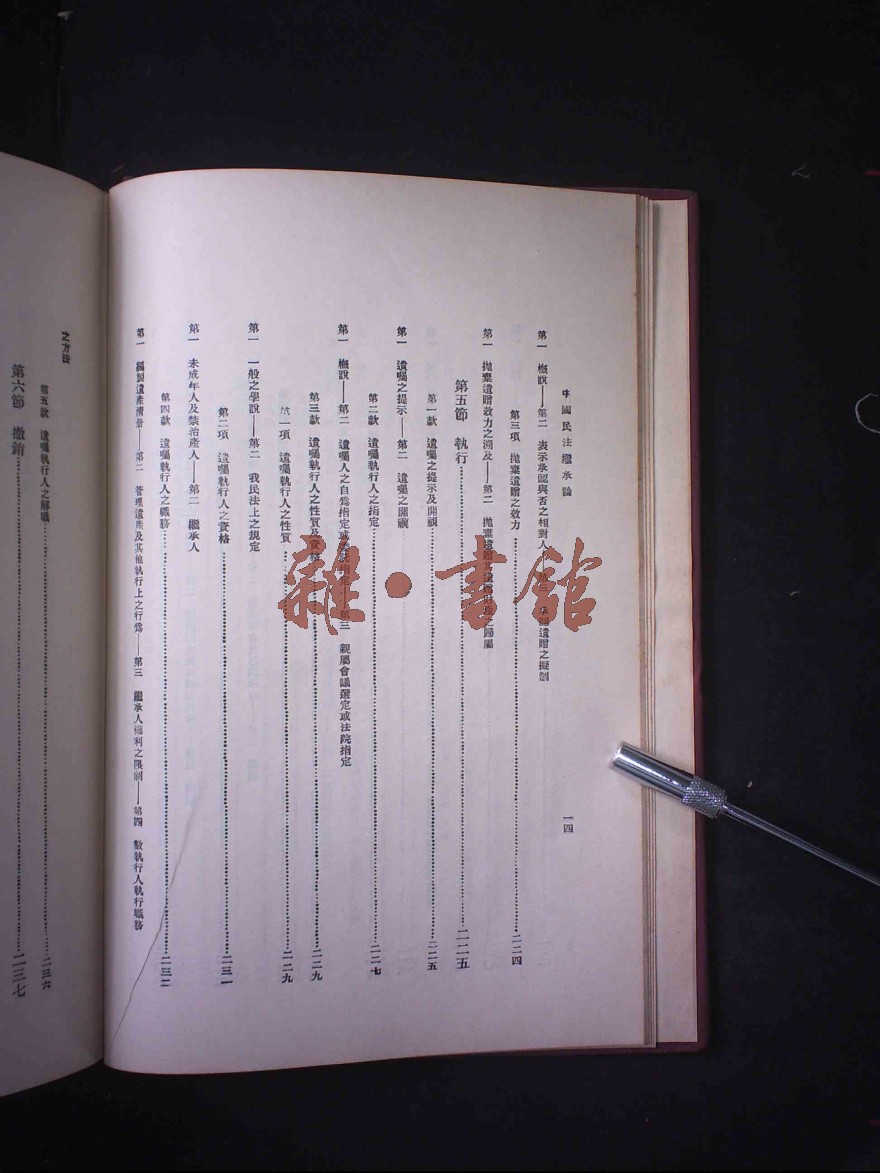 中國民法繼承論
一四
第一 概說——第二 表示承認與否之相對人——第三 承認遺贈之擬制
第三項 拋棄遺贈之效力……二二四
第一 拋棄遺贈效力之溯及——第二 拋棄遺贈之歸屬
第五節 執行……二二五
第一款 遺囑之提示及開視……二二五
第一 遺囑之提示——第二 遺囑之開視
第二款 遺囑執行人之指定……二二七
第一 概說——第二 遺囑人之自為指定或委託指定——第三 親屬會議選定或法院指定
第三款 遺囑執行人之性質及資格……二二九
第一項 遺囑執行人之性質……二二九
第一 一般之學說——第二 我民法上之規定
第二項 遺囑執行人之資格……二三一
第一 未成年人及禁治產人——第二 繼承人
第四款 遺囑執行人之職務……二三二
第一 編製遺產清冊——第二 管理遺產及其他執行上之行為——第三 繼承人權利之限制——第四 數執行人執行職務
之方法
第五款 遺囑執行人之解職……二三六
第六節 撤銷……二三七
雜·書館